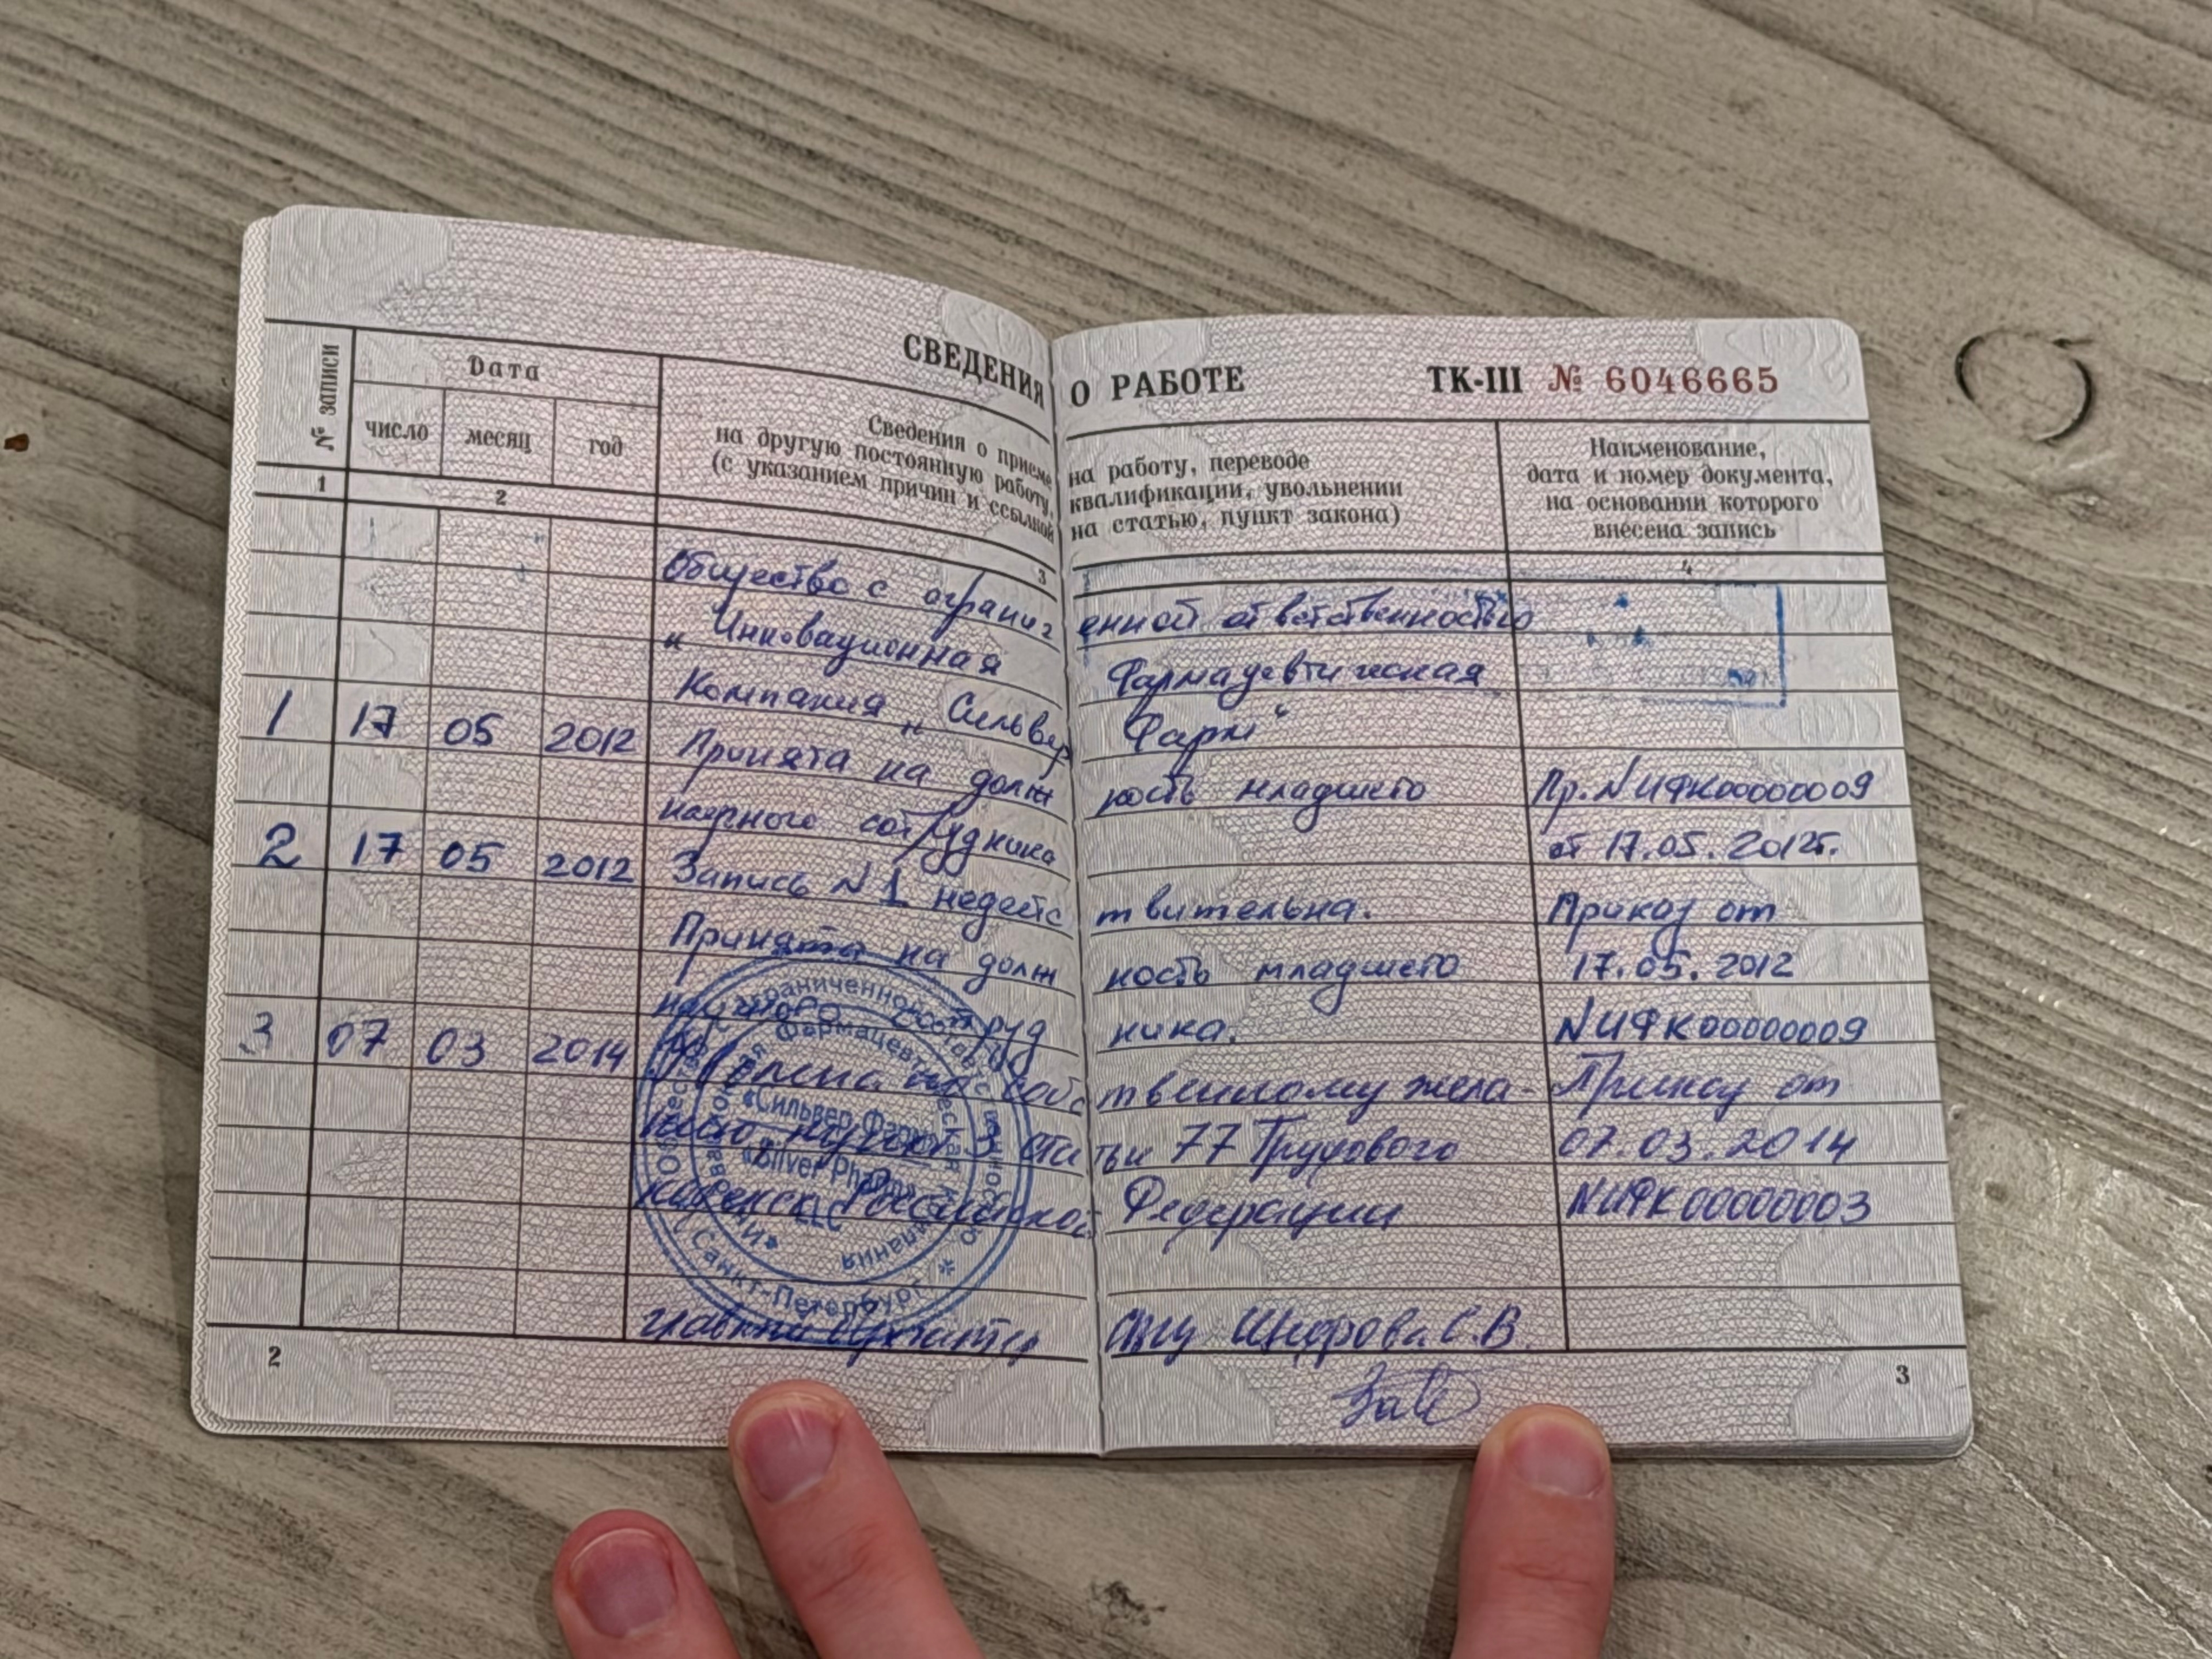 СВЕДЕНИЯ О РАБОТЕ ТК-III № 6046665
№ записи
Дата
число месяц год
Сведения о приеме на работу, переводе
на другую постоянную работу, квалификации, увольнении
(с указанием причин и ссылкой на статью, пункт закона)
Наименование,
дата и номер документа,
на основании которого
внесена запись
1 2 3 4
Общество с ограниченной ответственностью
" Инновационная Фармацевтическая
Компания „ Сильвер Фарм“
1 17 05 2012 Принята на должность младшего Пр.NИФК00000009
научного сотрудника от 17.05.2012г.
2 17 05 2012 Запись N 1 недействительна. Приказ от
Принята на должность младшего 17.05.2012
научного сотрудника. NИФК00000009
3 07 03 2014 Уволена по собственному жела- Приказ от
нию, пункт 3 статьи 77 Трудового 07.03.2014
кодекса Российской Федерации NИФК00000003
главный бухгалтер С.В
«Сильвер Фарм»
«Silver Pharm»
LLC
Фармацевтическая компания
Санкт-Петербург
2
3